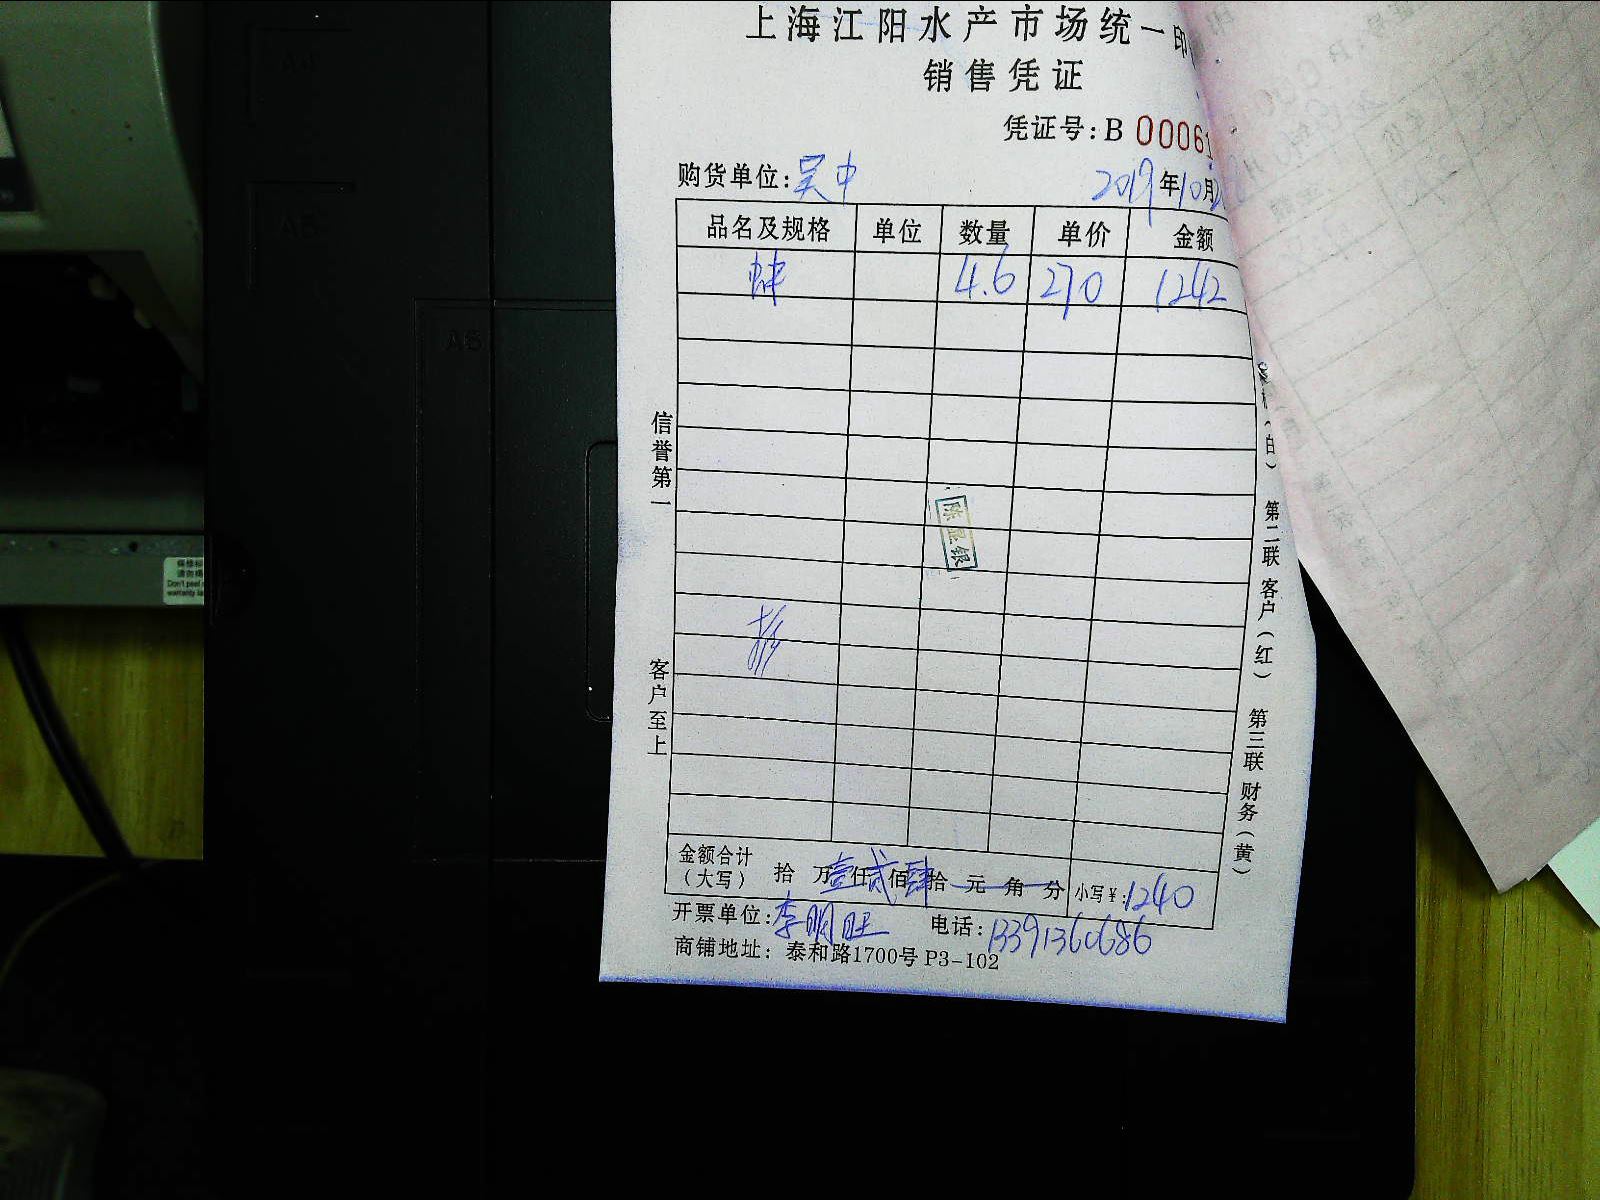 上海江阳水产市场统一印
销售凭证
凭证号: B 00061
购货单位: 吴中 2019年10月
品名及规格 单位 数量 单价 金额
4.6 270 1242
信誉第一
客户至上
陈显银
(白) 第二联 客户(红) 第三联 财务(黄)
金额合计(大写) 拾 万壹仟贰佰肆拾 元 角 分 小写¥:1240
开票单位:李明旺 电话:13391360686
商铺地址: 泰和路1700号 P3-102
A5
A6
Don't peel
warranty